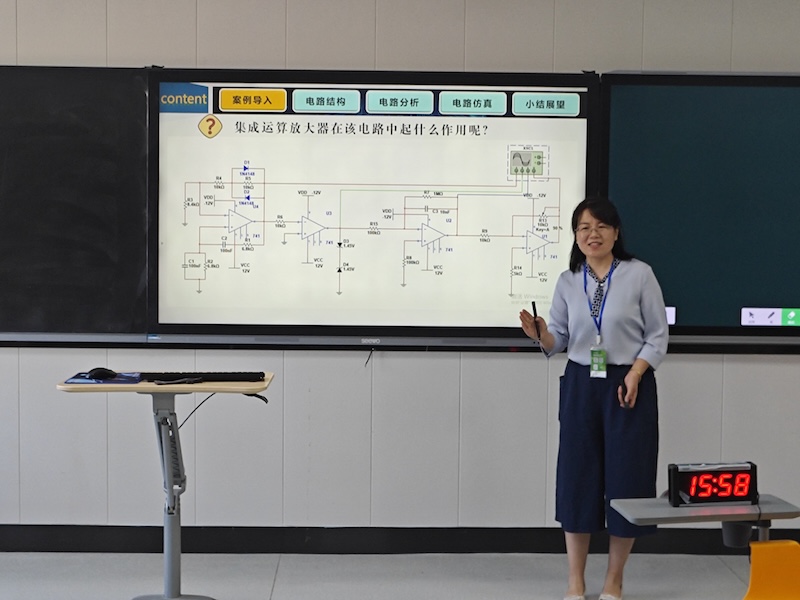 content
案例导入
电路结构
电路分析
电路仿真
小结展望
?
集成运算放大器在该电路中起什么作用呢?
D1
1N4148
R4
10kΩ
R5
10kΩ
D2
1N4148
U4
R3
VDD
-12V
741
C2
100nF
R1
6.8kΩ
C1
100nF
R2
6.8kΩ
VCC
12V
R6
10kΩ
VDD
-12V
U3
741
VCC
12V
D3
1.45V
D4
1.45V
R15
100kΩ
R7
1MΩ
C3
10nF
VDD
-12V
U2
741
R8
100kΩ
VCC
12V
R9
10kΩ
XSC1
VDD
-12V
10kΩ
Key=A
U1
741
R14
5kΩ
VCC
12V
15:58